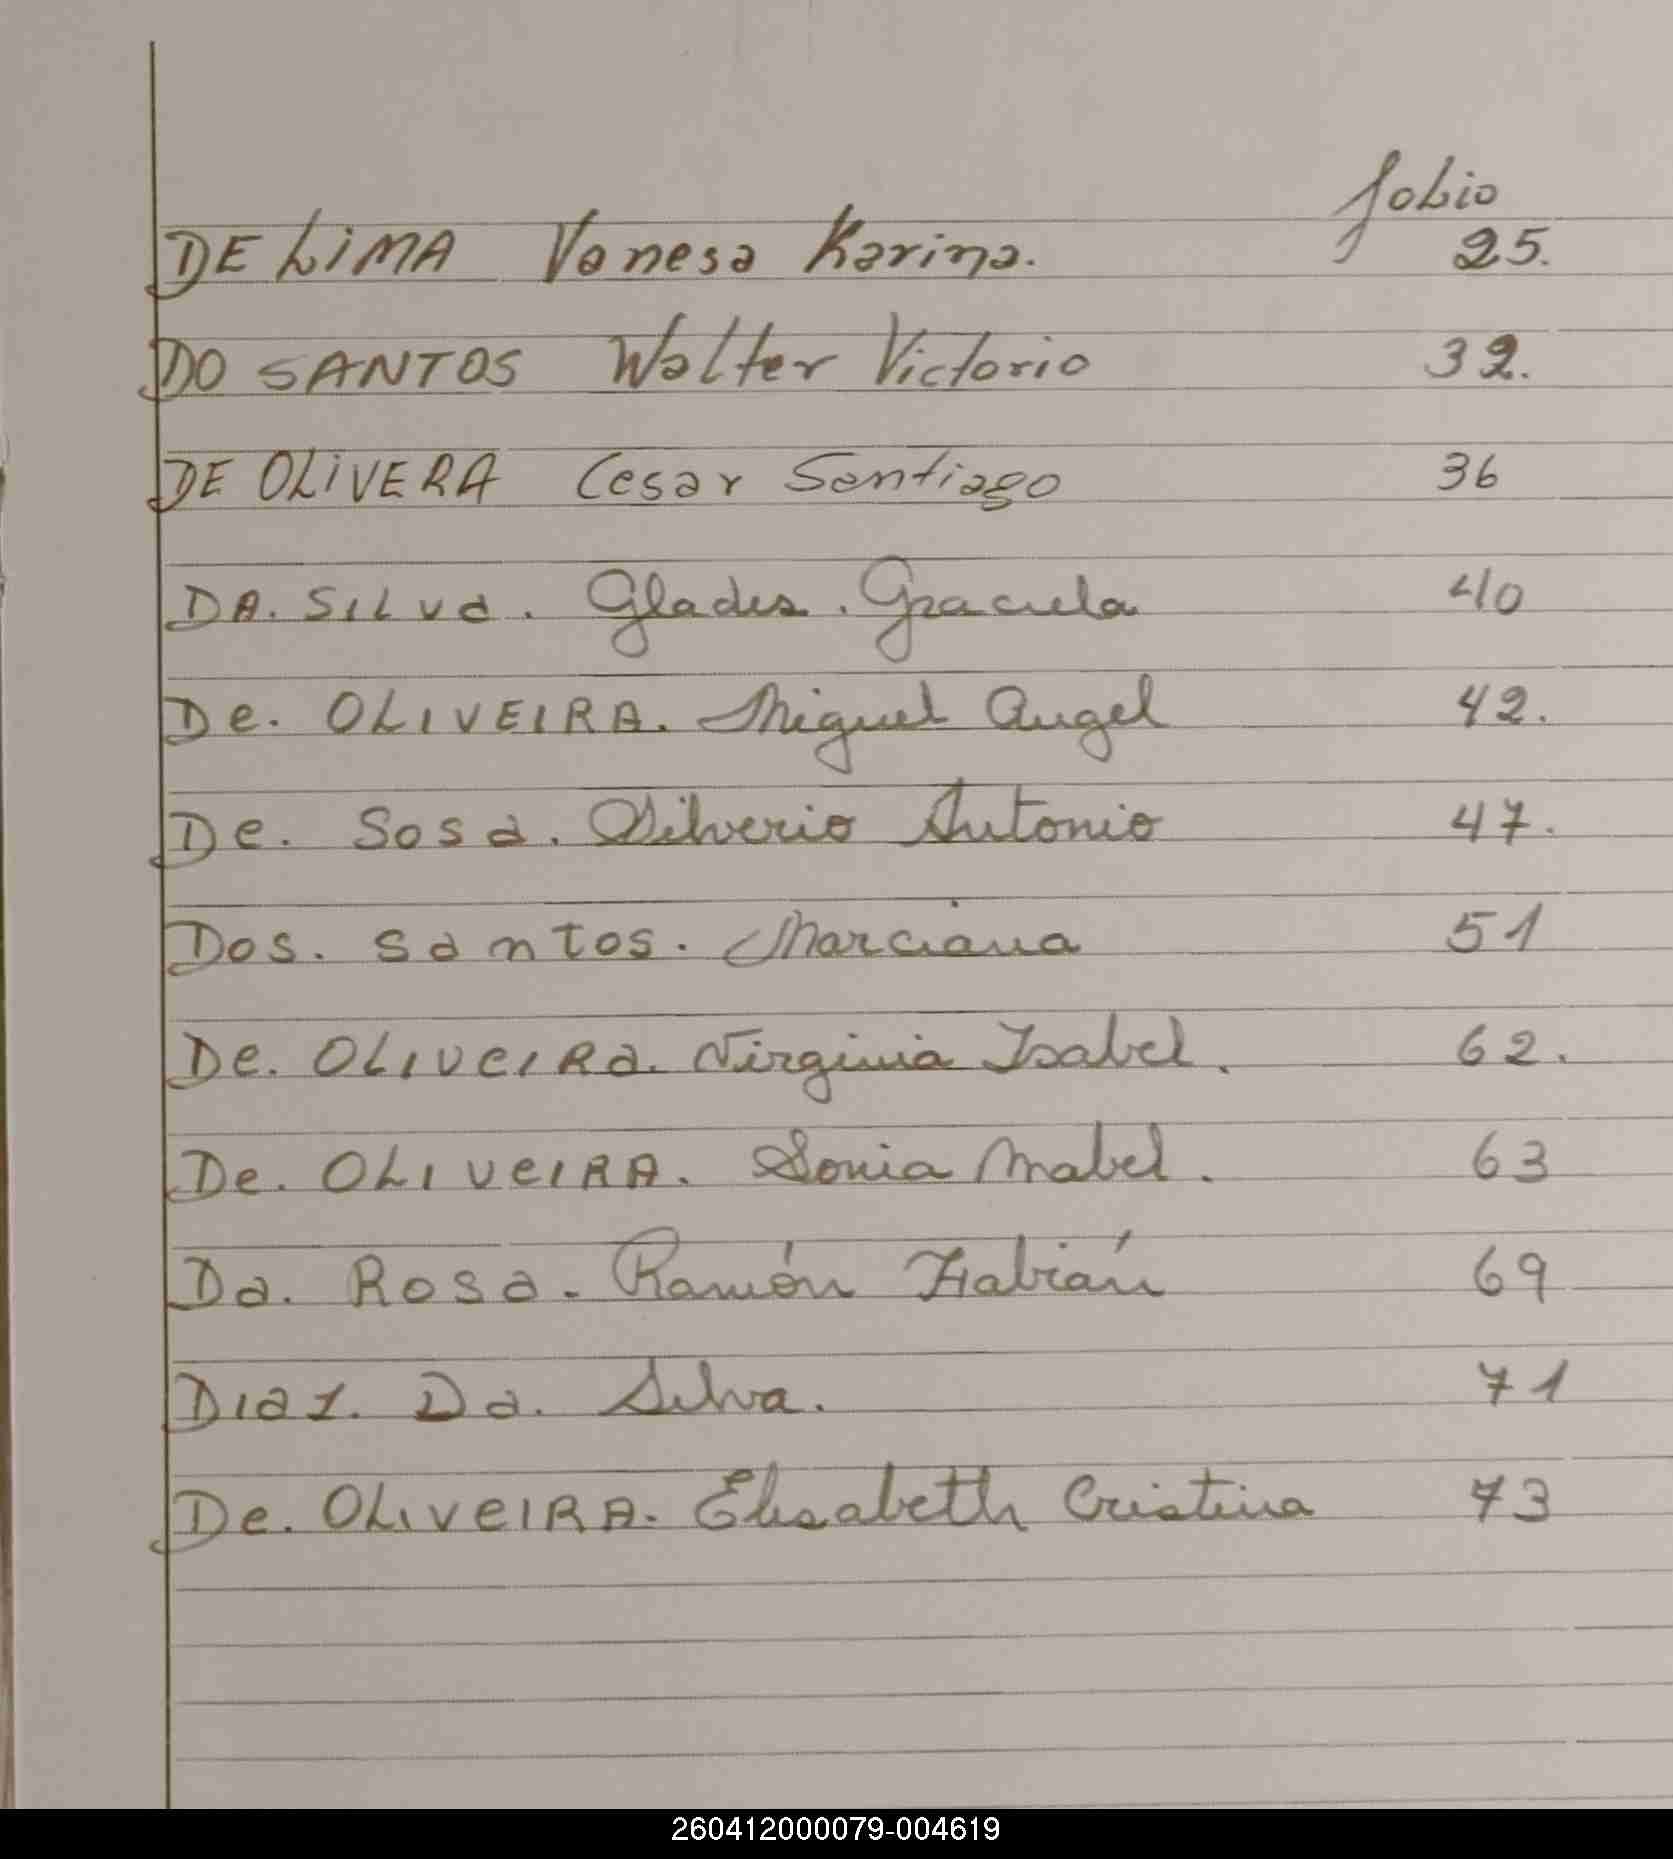 folio
DE LIMA Vanesa Karina. 25.
DO SANTOS Walter Victorio 32.
DE OLIVERA Cesar Santiago 36
DA. SILVA. Glades. Graciela 40
De. OLIVEIRA. Miguel Angel 42.
De. Sosa. Silverio Antonio 47.
Dos. santos. Marciana 51
De. OLIVEIRA. Virginia Isabel. 62.
De. OLIVEIRA. Sonia Mabel. 63
Da. Rosa. Ramón Fabián 69
Diaz. Da. Silva. 71
De. OLIVEIRA. Elisabeth Cristina 73
260412000079-004619